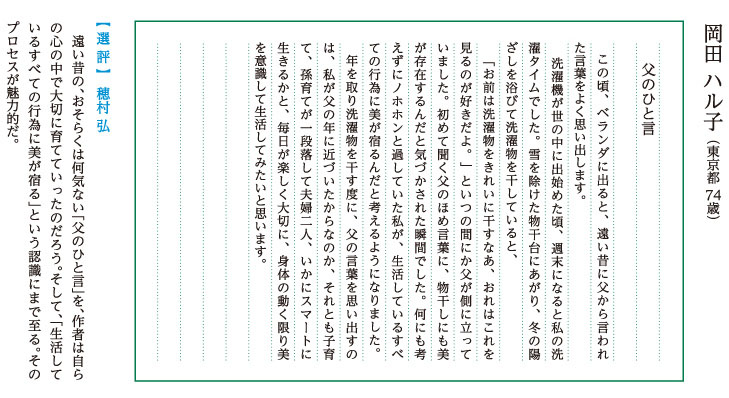 岡田 ハル子（東京都 74歳）
父のひと言
この頃、ベランダに出ると、遠い昔に父から言われ
た言葉をよく思い出します。
洗濯機が世の中に出始めた頃、週末になると私の洗
濯タイムでした。雪を除けた物干台にあがり、冬の陽
ざしを浴びて洗濯物を干していると、
「お前は洗濯物をきれいに干すなあ、おれはこれを
見るのが好きだよ。」といつの間にか父が側に立って
いました。初めて聞く父のほめ言葉に、物干しにも美
が存在するんだと気づかされた瞬間でした。何にも考
えずにノホホンと過していた私が、生活しているすべ
ての行為に美が宿るんだと考えるようになりました。
年を取り洗濯物を干す度に、父の言葉を思い出すの
は、私が父の年に近づいたからなのか、それとも子育
て、孫育てが一段落して夫婦二人、いかにスマートに
生きるかと、毎日が楽しく大切に、身体の動く限り美
を意識して生活してみたいと思います。
【選評】穂村 弘
遠い昔の、おそらくは何気ない「父のひと言」を、作者は自ら
の心の中で大切に育てていったのだろう。そして、「生活して
いるすべての行為に美が宿る」という認識にまで至る。その
プロセスが魅力的だ。